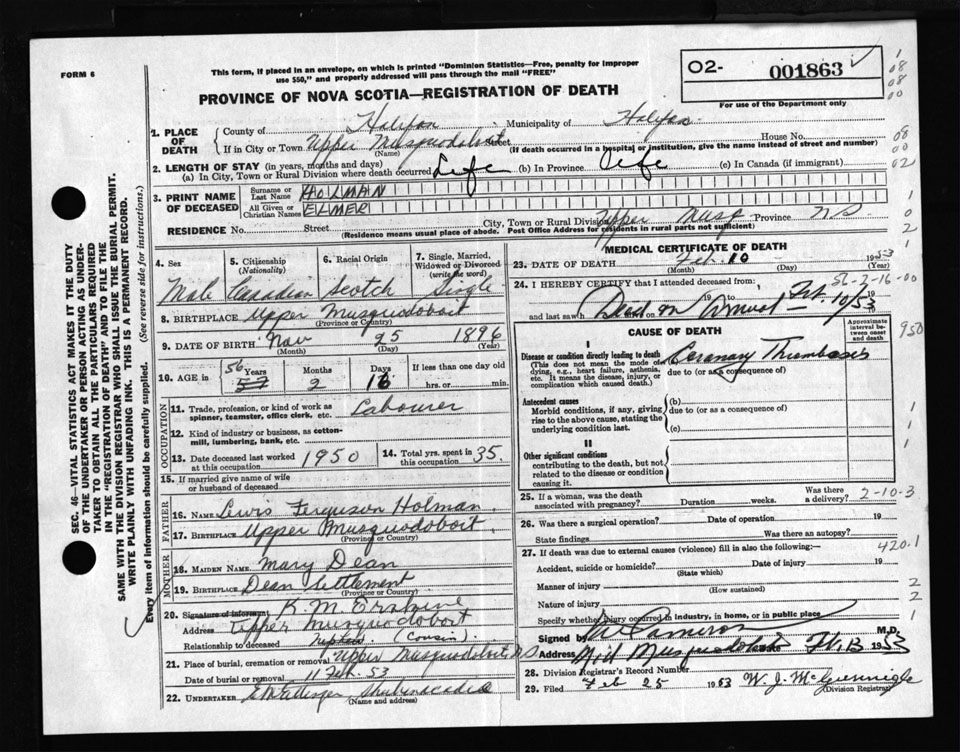 FORM 6
This form, if placed in an envelope, on which is printed "Dominion Statistics—Free, penalty for improper
use $50," and properly addressed will pass through the mail "FREE"
O2- 001863
For use of the Department only
PROVINCE OF NOVA SCOTIA—REGISTRATION OF DEATH
SEC. 46—VITAL STATISTICS ACT MAKES IT THE DUTY
OF THE UNDERTAKER OR PERSON ACTING AS UNDER-
TAKER TO OBTAIN ALL THE PARTICULARS REQUIRED
IN THE "REGISTRATION OF DEATH" AND TO FILE THE
SAME WITH THE DIVISION REGISTRAR WHO SHALL ISSUE THE BURIAL PERMIT.
WRITE PLAINLY WITH UNFADING INK. THIS IS A PERMANENT RECORD.
Every item of Information should be carefully supplied. (See reverse side for instructions.)
1. PLACE OF DEATH
County of Halifax Municipality of Halifax
If in City or Town Upper Musquodoboit Street House No.
(Name) (If death occurred in a hospital or institution, give the name instead of street and number)
2. LENGTH OF STAY (in years, months and days)
(a) In City, Town or Rural Division where death occurred Life (b) In Province Life (c) In Canada (if immigrant)
3. PRINT NAME OF DECEASED
Surname or Last Name HOLMAN
All Given or Christian Names ELMER
RESIDENCE No. Street City, Town or Rural Division Upper Musq Province NS
(Residence means usual place of abode. Post Office Address for residents in rural parts not sufficient)
4. Sex
Male
5. Citizenship
(Nationality)
Canadian
6. Racial Origin
Scotch
7. Single, Married,
Widowed or Divorced
(write the word)
Single
8. BIRTHPLACE Upper Musquodoboit
(Province or Country)
9. DATE OF BIRTH Nov 25 1896
(Month) (Day) (Year)
10. AGE in 56 57 Years 2 Months 16 Days If less than one day old
hrs. or min.
OCCUPATION
11. Trade, profession, or kind of work as
spinner, teamster, office clerk, etc. Labourer
12. Kind of industry or business, as cotton-
mill, lumbering, bank, etc.
13. Date deceased last worked
at this occupation 1950
14. Total yrs. spent in
this occupation 35.
15. If married give name of wife
or husband of deceased
FATHER
16. NAME Lewis Ferguson Holman
17. BIRTHPLACE Upper Musquodoboit
(Province or Country)
MOTHER
18. MAIDEN NAME Mary Dean
19. BIRTHPLACE Dean Settlement
(Province or Country)
20. Signature of informant R. M. Erskine
Address Upper Musquodoboit
Relationship to deceased Nephew (Cousin)
21. Place of burial, cremation or removal Upper Musquodoboit N.S
Date of burial or removal 11 Feb. 53
22. UNDERTAKER Shubenacadie
(Name and address)
MEDICAL CERTIFICATE OF DEATH
23. DATE OF DEATH Feb. 10 1953
(Month) (Day) (Year)
24. I HEREBY CERTIFY that I attended deceased from:
19 to
and last saw Dead on Arrival Feb 10/53
CAUSE OF DEATH
Approximate
interval be-
tween onset
and death
I
Disease or condition directly leading to death
(This does not mean the mode of
dying, e.g., heart failure, asthenia,
etc. It means the disease, injury, or
complication which caused death.)
(a) Coronary Thrombosis
due to (or as a consequence of)
Antecedent causes
Morbid conditions, if any, giving
rise to the above cause, stating the
underlying condition last.
(b)
due to (or as a consequence of)
(c)
II
Other significant conditions
contributing to the death, but not
related to the disease or condition
causing it.
25. If a woman, was the death
associated with pregnancy? Duration weeks. Was there
a delivery? 2-10-3
26. Was there a surgical operation? Date of operation 19
State findings Was there an autopsy?
27. If death was due to external causes (violence) fill in also the following:— 420.1
Accident, suicide or homicide? Date of injury 19
(State which)
Manner of injury
(How sustained)
Nature of injury
Specify whether injury occurred in industry, in home, or in public place
Signed by Cameron M.D.
Address Mid Musquodoboit Feb 13 1953
28. Division Registrar's Record Number
29. Filed Feb 25 1953 W. J. McGunnigle
(Division Registrar)
1
08
08
00
08
00
02
1
0
2
56-2-16-00
950
1
1
1
2
2
1